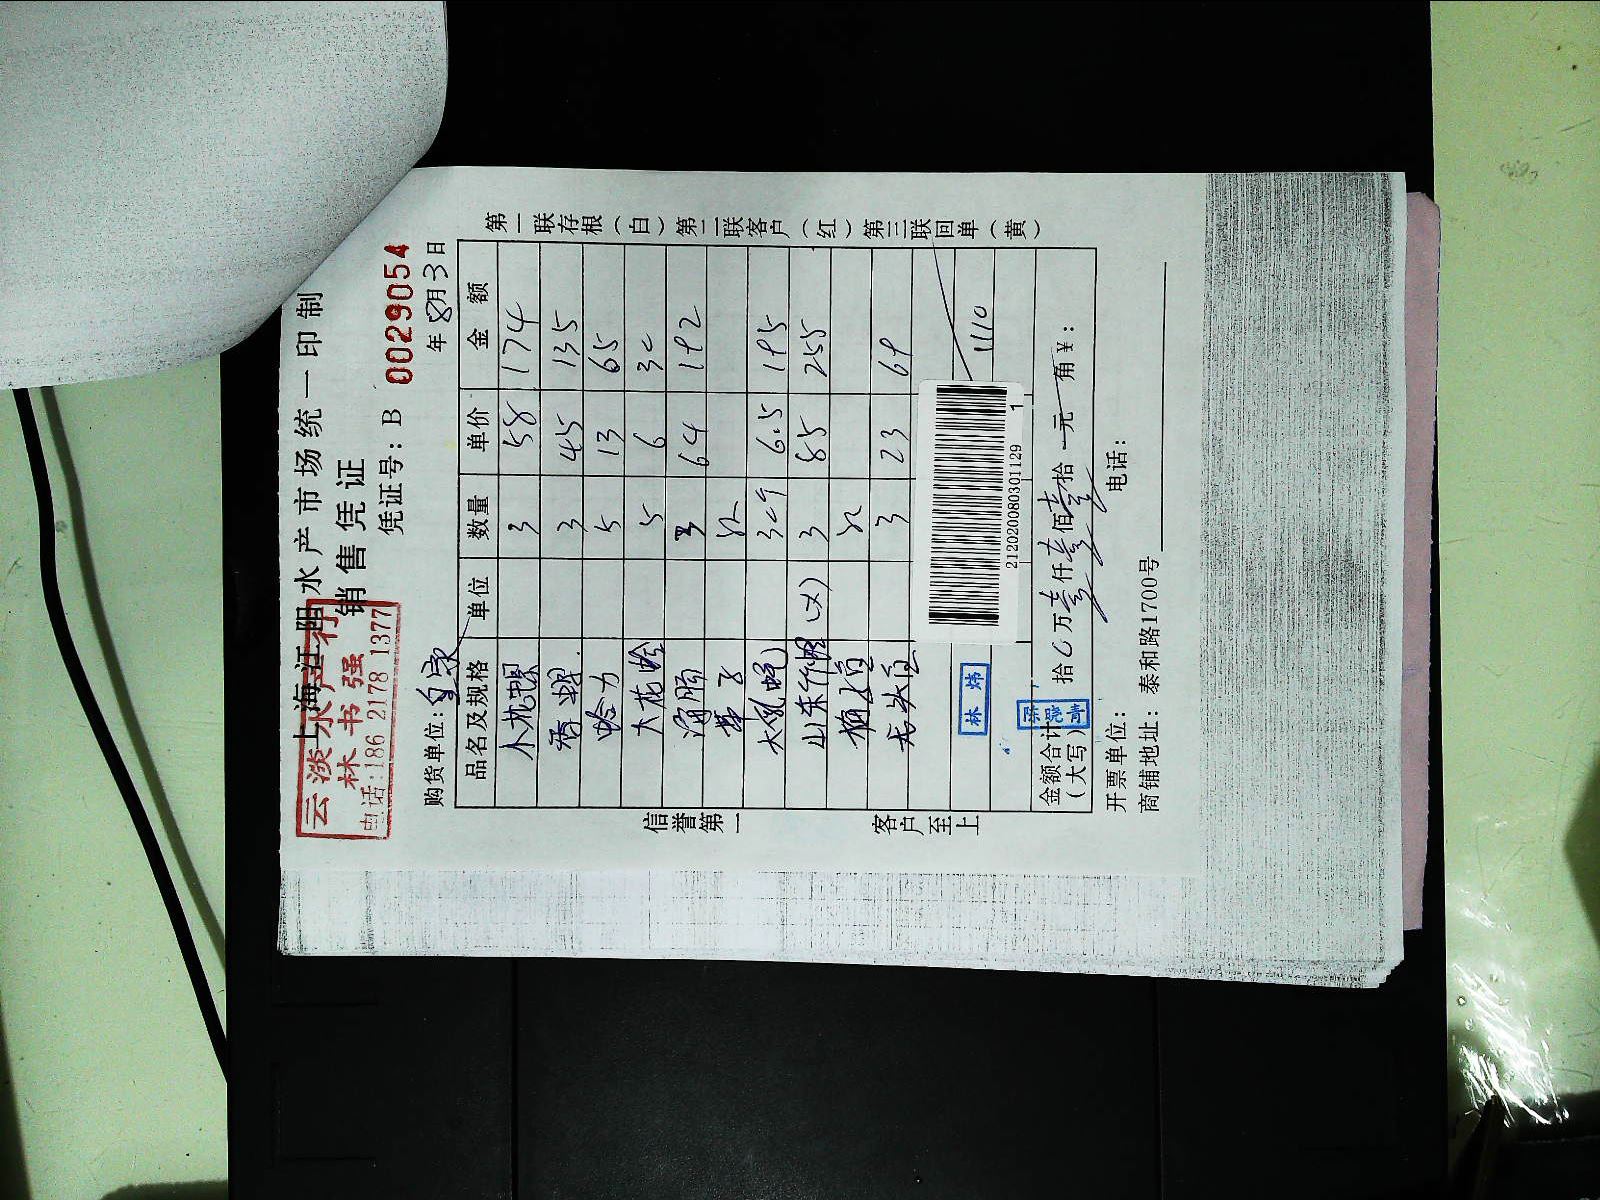 上海江阳水产市场统一印制
销售凭证
云淡水产行
林书强
电话:186 2178 1377
凭证号: B 0029054
购货单位:
年 8月 3日
品名及规格 单位 数量 单价 金额
3 58 174
香螺 3 45 135
蛤力 5 13 65
大花蛤 5 6 30
3 64 192
6.5 195
3 85 255
3 23 69
1110
21202008030112​9 1
林炜
陈晓青
金额合计
(大写) 拾 万壹仟壹佰壹拾 元 角 ¥:
开票单位: 电话:
商铺地址: 泰和路1700号
信誉第一 客户至上
第一联存根(白)第二联客户(红)第三联回单(黄)